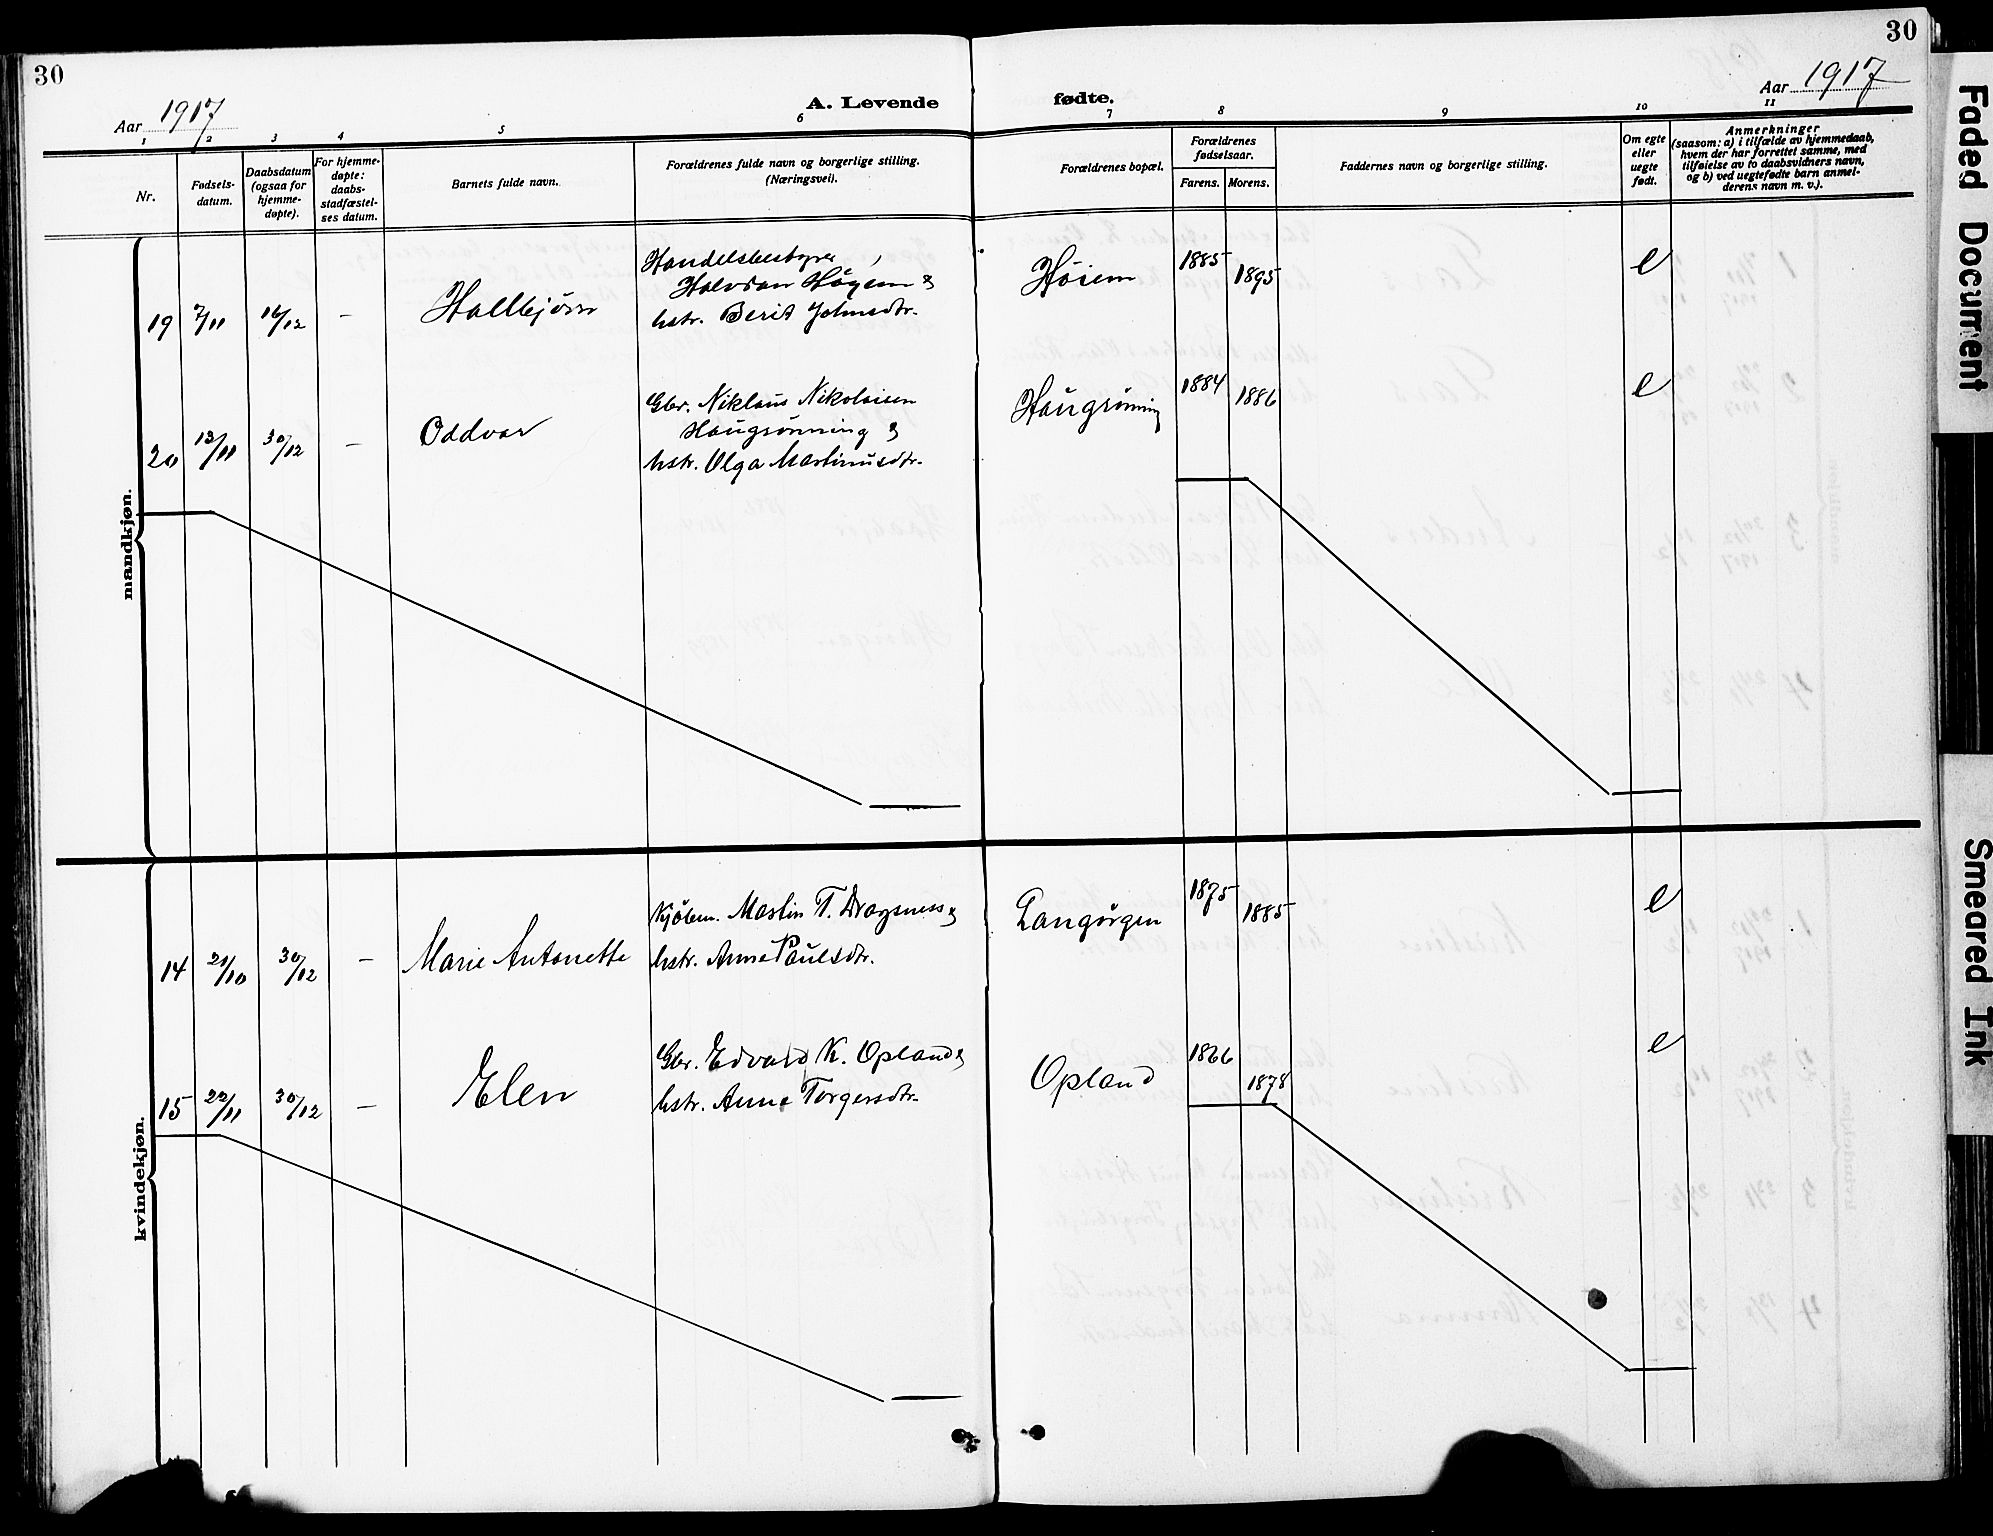 30
30
Aar 1917
A. Levende fødte.
Aar 1917
1 2 3 4 5 6 7 8 9 10 11
Nr.
Fødsels-
datum.
Daabsdatum
(ogsaa for
hjemme-
døpte).
For hjemme-
døpte:
daabs-
stadfæstel-
ses datum.
Barnets fulde navn.
Forældrenes fulde navn og borgerlige stilling.
(Næringsvei).
Forældrenes bopæl.
Forældrenes
fødselsaar.
Farens. Morens.
Faddernes navn og borgerlige stilling.
Om egte
eller
uegte
født.
Anmerkninger
(saasom: a) i tilfælde av hjemmedaab,
hvem der har forrettet samme, med
tilføielse av to daabsvidners navn,
og b) ved uegtefødte barn anmel-
derens navn m. v.).
mandkjøn.
19 7/11 16/12 – Hallbjörn
Handelsbestyrer
Halvdan Høyem &
hstr. Berit Johnsdtr.
Høiem 1885 1895 e
20 13/11 30/12 – Oddvar
Gbr. Niklaus Nikolaisen
Haugrönning &
hstr. Olga Martinusdtr.
Haugrönning 1884 1886 e
kvindekjøn.
14 21/10 30/12 – Marie Antonette
Kjöbm. Martin T. Dragsness &
hstr. Anna Paulsdtr.
Langörgen 1875 1885 e
15 22/11 30/12 – Elen
Gbr. Edvard K. Opland &
hstr. Anna Torgersdtr.
Opland 1866 1878 e
Faded Document
Smeared Ink